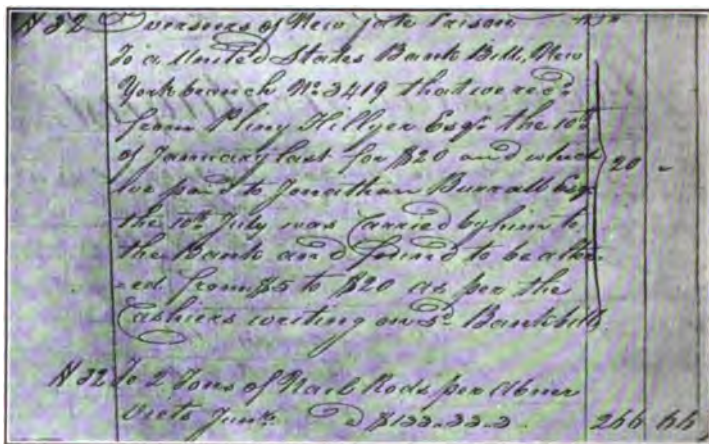 N 32 Overseers of New Gate Prison Dr
To a United States Bank Bill, New
York branch No 3419 that we recd
from Pliny Hillyer Esqr the 10th
of January last for $20 and which
we paid to Jonathan Burrall Esqr
the 10th July was Carried by him to
the Bank and found to be alter
=ed from $5 to $20 as per the
Cashiers writing on sd Bank bill
20 -
N 32 To 2 Tons of Nail Rods per Abner
Viets Junr
266 66